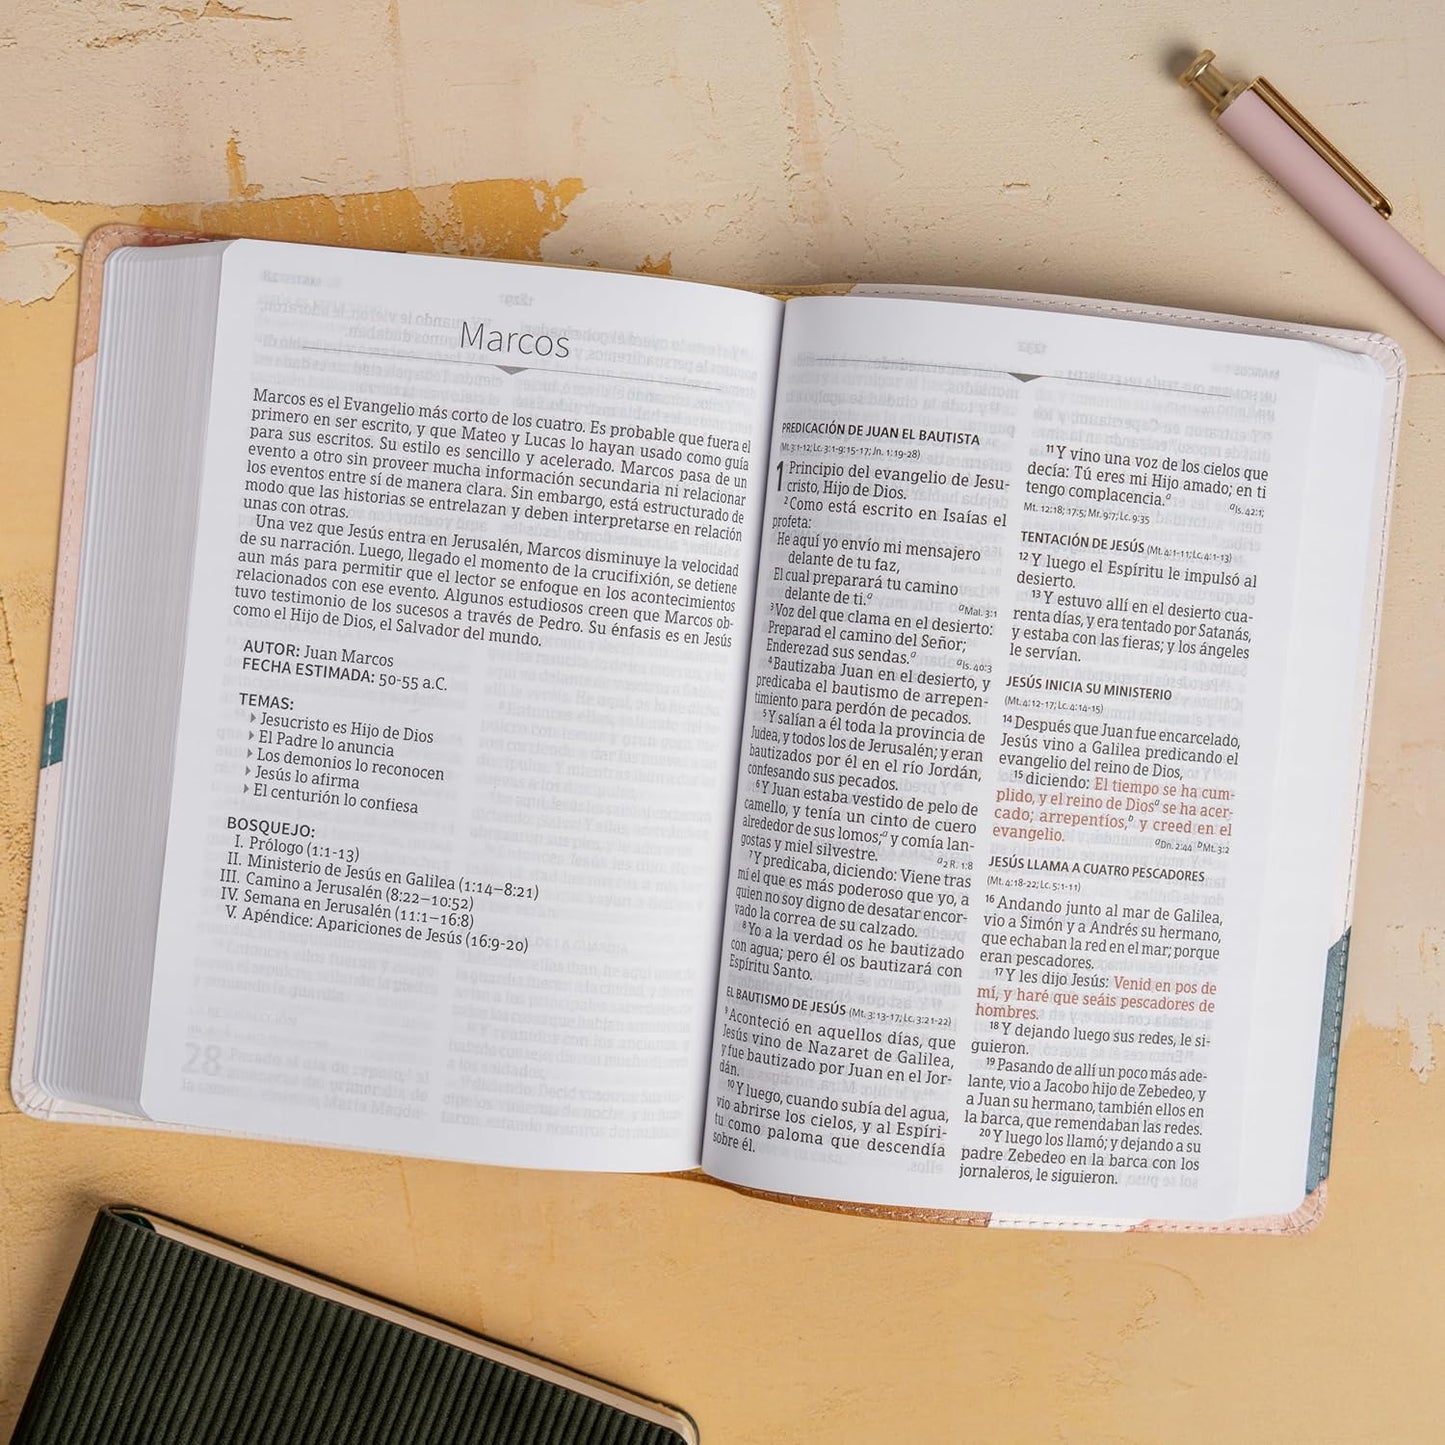 Marcos
Marcos es el Evangelio más corto de los cuatro. Es probable que fuera el
primero en ser escrito, y que Mateo y Lucas lo hayan usado como guía
para sus escritos. Su estilo es sencillo y acelerado. Marcos pasa de un
evento a otro sin proveer mucha información secundaria ni relacionar
los eventos entre sí de manera clara. Sin embargo, está estructurado de
modo que las historias se entrelazan y deben interpretarse en relación
unas con otras.
Una vez que Jesús entra en Jerusalén, Marcos disminuye la velocidad
de su narración. Luego, llegado el momento de la crucifixión, se detiene
aun más para permitir que el lector se enfoque en los acontecimientos
relacionados con ese evento. Algunos estudiosos creen que Marcos ob-
tuvo testimonio de los sucesos a través de Pedro. Su énfasis es en Jesús
como el Hijo de Dios, el Salvador del mundo.
AUTOR: Juan Marcos
FECHA ESTIMADA: 50-55 a.C.
TEMAS:
Jesucristo es Hijo de Dios
El Padre lo anuncia
Los demonios lo reconocen
Jesús lo afirma
El centurión lo confiesa
BOSQUEJO:
I. Prólogo (1:1-13)
II. Ministerio de Jesús en Galilea (1:14–8:21)
III. Camino a Jerusalén (8:22–10:52)
IV. Semana en Jerusalén (11:1–16:8)
V. Apéndice: Apariciones de Jesús (16:9-20)
PREDICACIÓN DE JUAN EL BAUTISTA
(Mt. 3:1-12; Lc. 3:1-9; 15-17; Jn. 1:19-28)
1 Principio del evangelio de Jesu-
cristo, Hijo de Dios.
2 Como está escrito en Isaías el
profeta:
He aquí yo envío mi mensajero
delante de tu faz,
El cual preparará tu camino
delante de ti.a a Mal. 3:1
3 Voz del que clama en el desierto:
Preparad el camino del Señor;
Enderezad sus sendas.a a Is. 40:3
4 Bautizaba Juan en el desierto, y
predicaba el bautismo de arrepen-
timiento para perdón de pecados.
5 Y salían a él toda la provincia de
Judea, y todos los de Jerusalén; y eran
bautizados por él en el río Jordán,
confesando sus pecados.
6 Y Juan estaba vestido de pelo de
camello, y tenía un cinto de cuero
alrededor de sus lomos;a y comía lan-
gostas y miel silvestre. a 2 R. 1:8
7 Y predicaba, diciendo: Viene tras
mí el que es más poderoso que yo, a
quien no soy digno de desatar encor-
vado la correa de su calzado.
8 Yo a la verdad os he bautizado
con agua; pero él os bautizará con
Espíritu Santo.
EL BAUTISMO DE JESÚS (Mt. 3:13-17; Lc. 3:21-22)
9 Aconteció en aquellos días, que
Jesús vino de Nazaret de Galilea,
y fue bautizado por Juan en el Jor-
dán.
10 Y luego, cuando subía del agua,
vio abrirse los cielos, y al Espíri-
tu como paloma que descendía
sobre él.
11 Y vino una voz de los cielos que
decía: Tú eres mi Hijo amado; en ti
tengo complacencia.a a Is. 42:1;
Mt. 12:18; 17:5; Mr. 9:7; Lc. 9:35
TENTACIÓN DE JESÚS (Mt. 4:1-11; Lc. 4:1-13)
12 Y luego el Espíritu le impulsó al
desierto.
13 Y estuvo allí en el desierto cua-
renta días, y era tentado por Satanás,
y estaba con las fieras; y los ángeles
le servían.
JESÚS INICIA SU MINISTERIO
(Mt. 4:12-17; Lc. 4:14-15)
14 Después que Juan fue encarcelado,
Jesús vino a Galilea predicando el
evangelio del reino de Dios,
15 diciendo: El tiempo se ha cum-
plido, y el reino de Diosa se ha acer-
cado; arrepentíos,b y creed en el
evangelio. a Dn. 2:44 b Mt. 3:2
JESÚS LLAMA A CUATRO PESCADORES
(Mt. 4:18-22; Lc. 5:1-11)
16 Andando junto al mar de Galilea,
vio a Simón y a Andrés su hermano,
que echaban la red en el mar; porque
eran pescadores.
17 Y les dijo Jesús: Venid en pos de
mí, y haré que seáis pescadores de
hombres.
18 Y dejando luego sus redes, le si-
guieron.
19 Pasando de allí un poco más ade-
lante, vio a Jacobo hijo de Zebedeo, y
a Juan su hermano, también ellos en
la barca, que remendaban las redes.
20 Y luego los llamó; y dejando a su
padre Zebedeo en la barca con los
jornaleros, le siguieron.